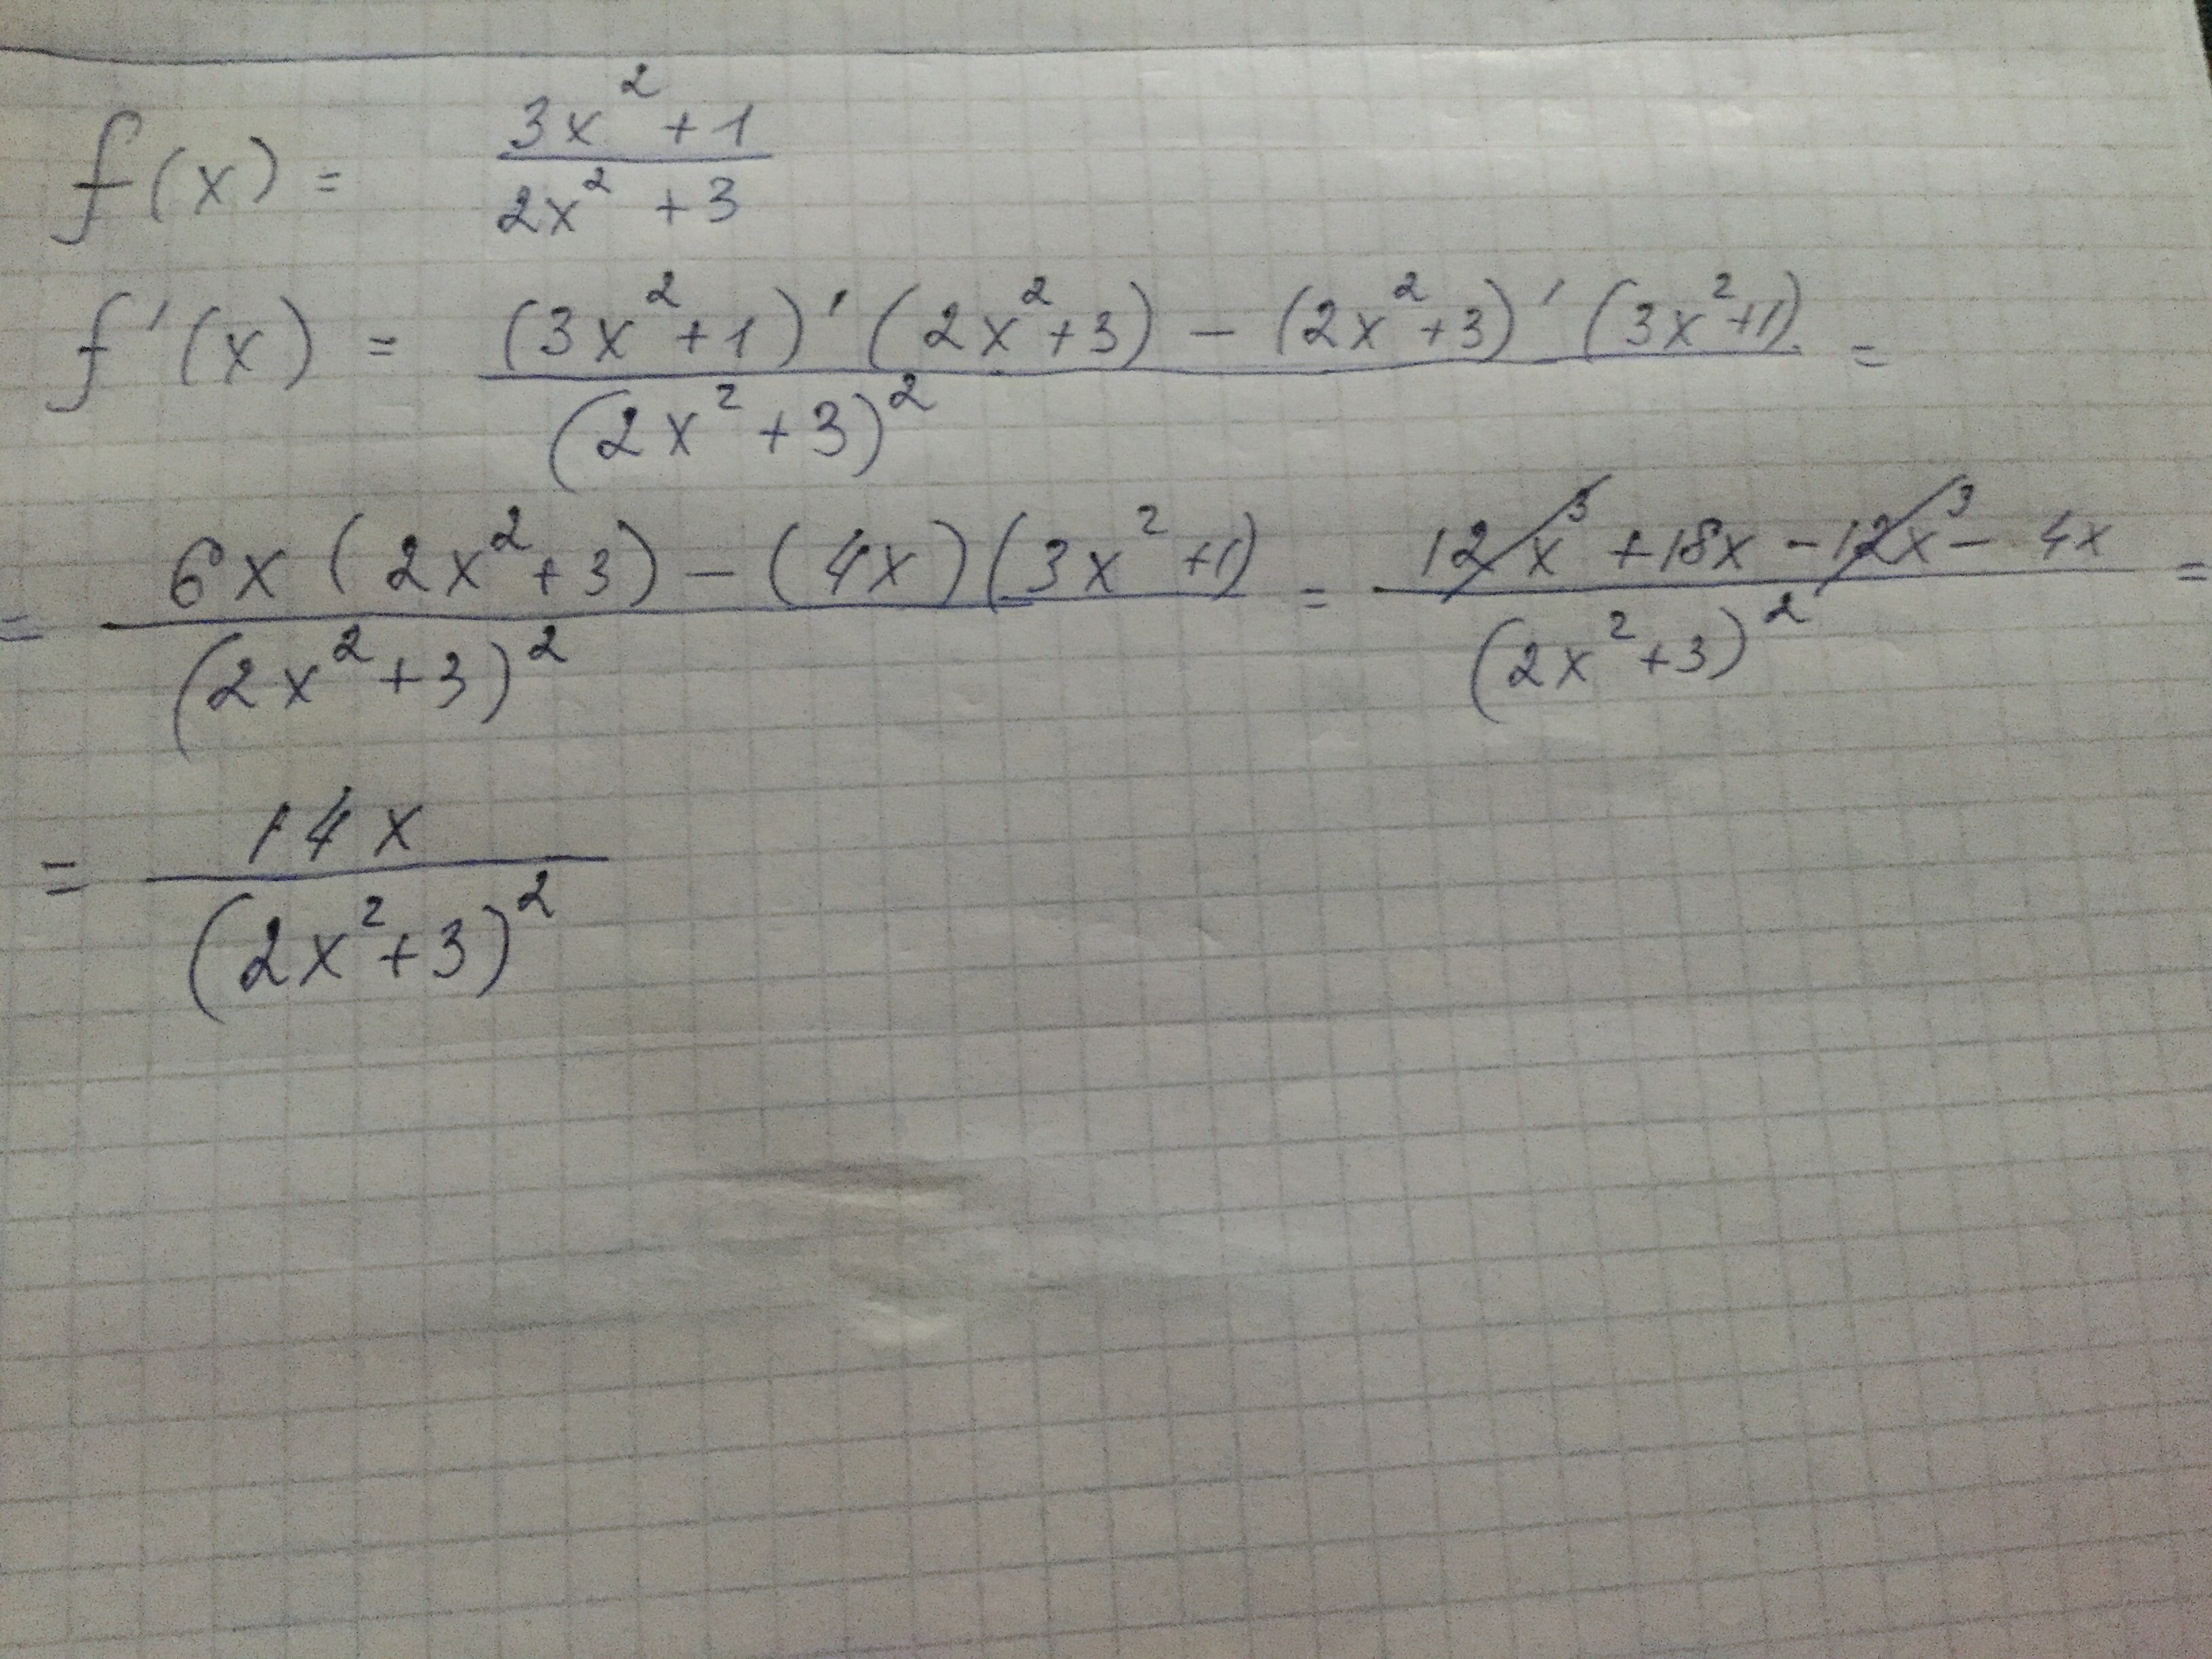 f(x) = (3x² + 1) / (2x² + 3)
f'(x) = ((3x² + 1)' (2x² + 3) - (2x² + 3)' (3x² + 1)) / (2x² + 3)² =
= (6x (2x² + 3) - (4x)(3x² + 1)) / (2x² + 3)² = (12x³ + 18x - 12x³ - 4x) / (2x² + 3)² =
= 14x / (2x² + 3)²